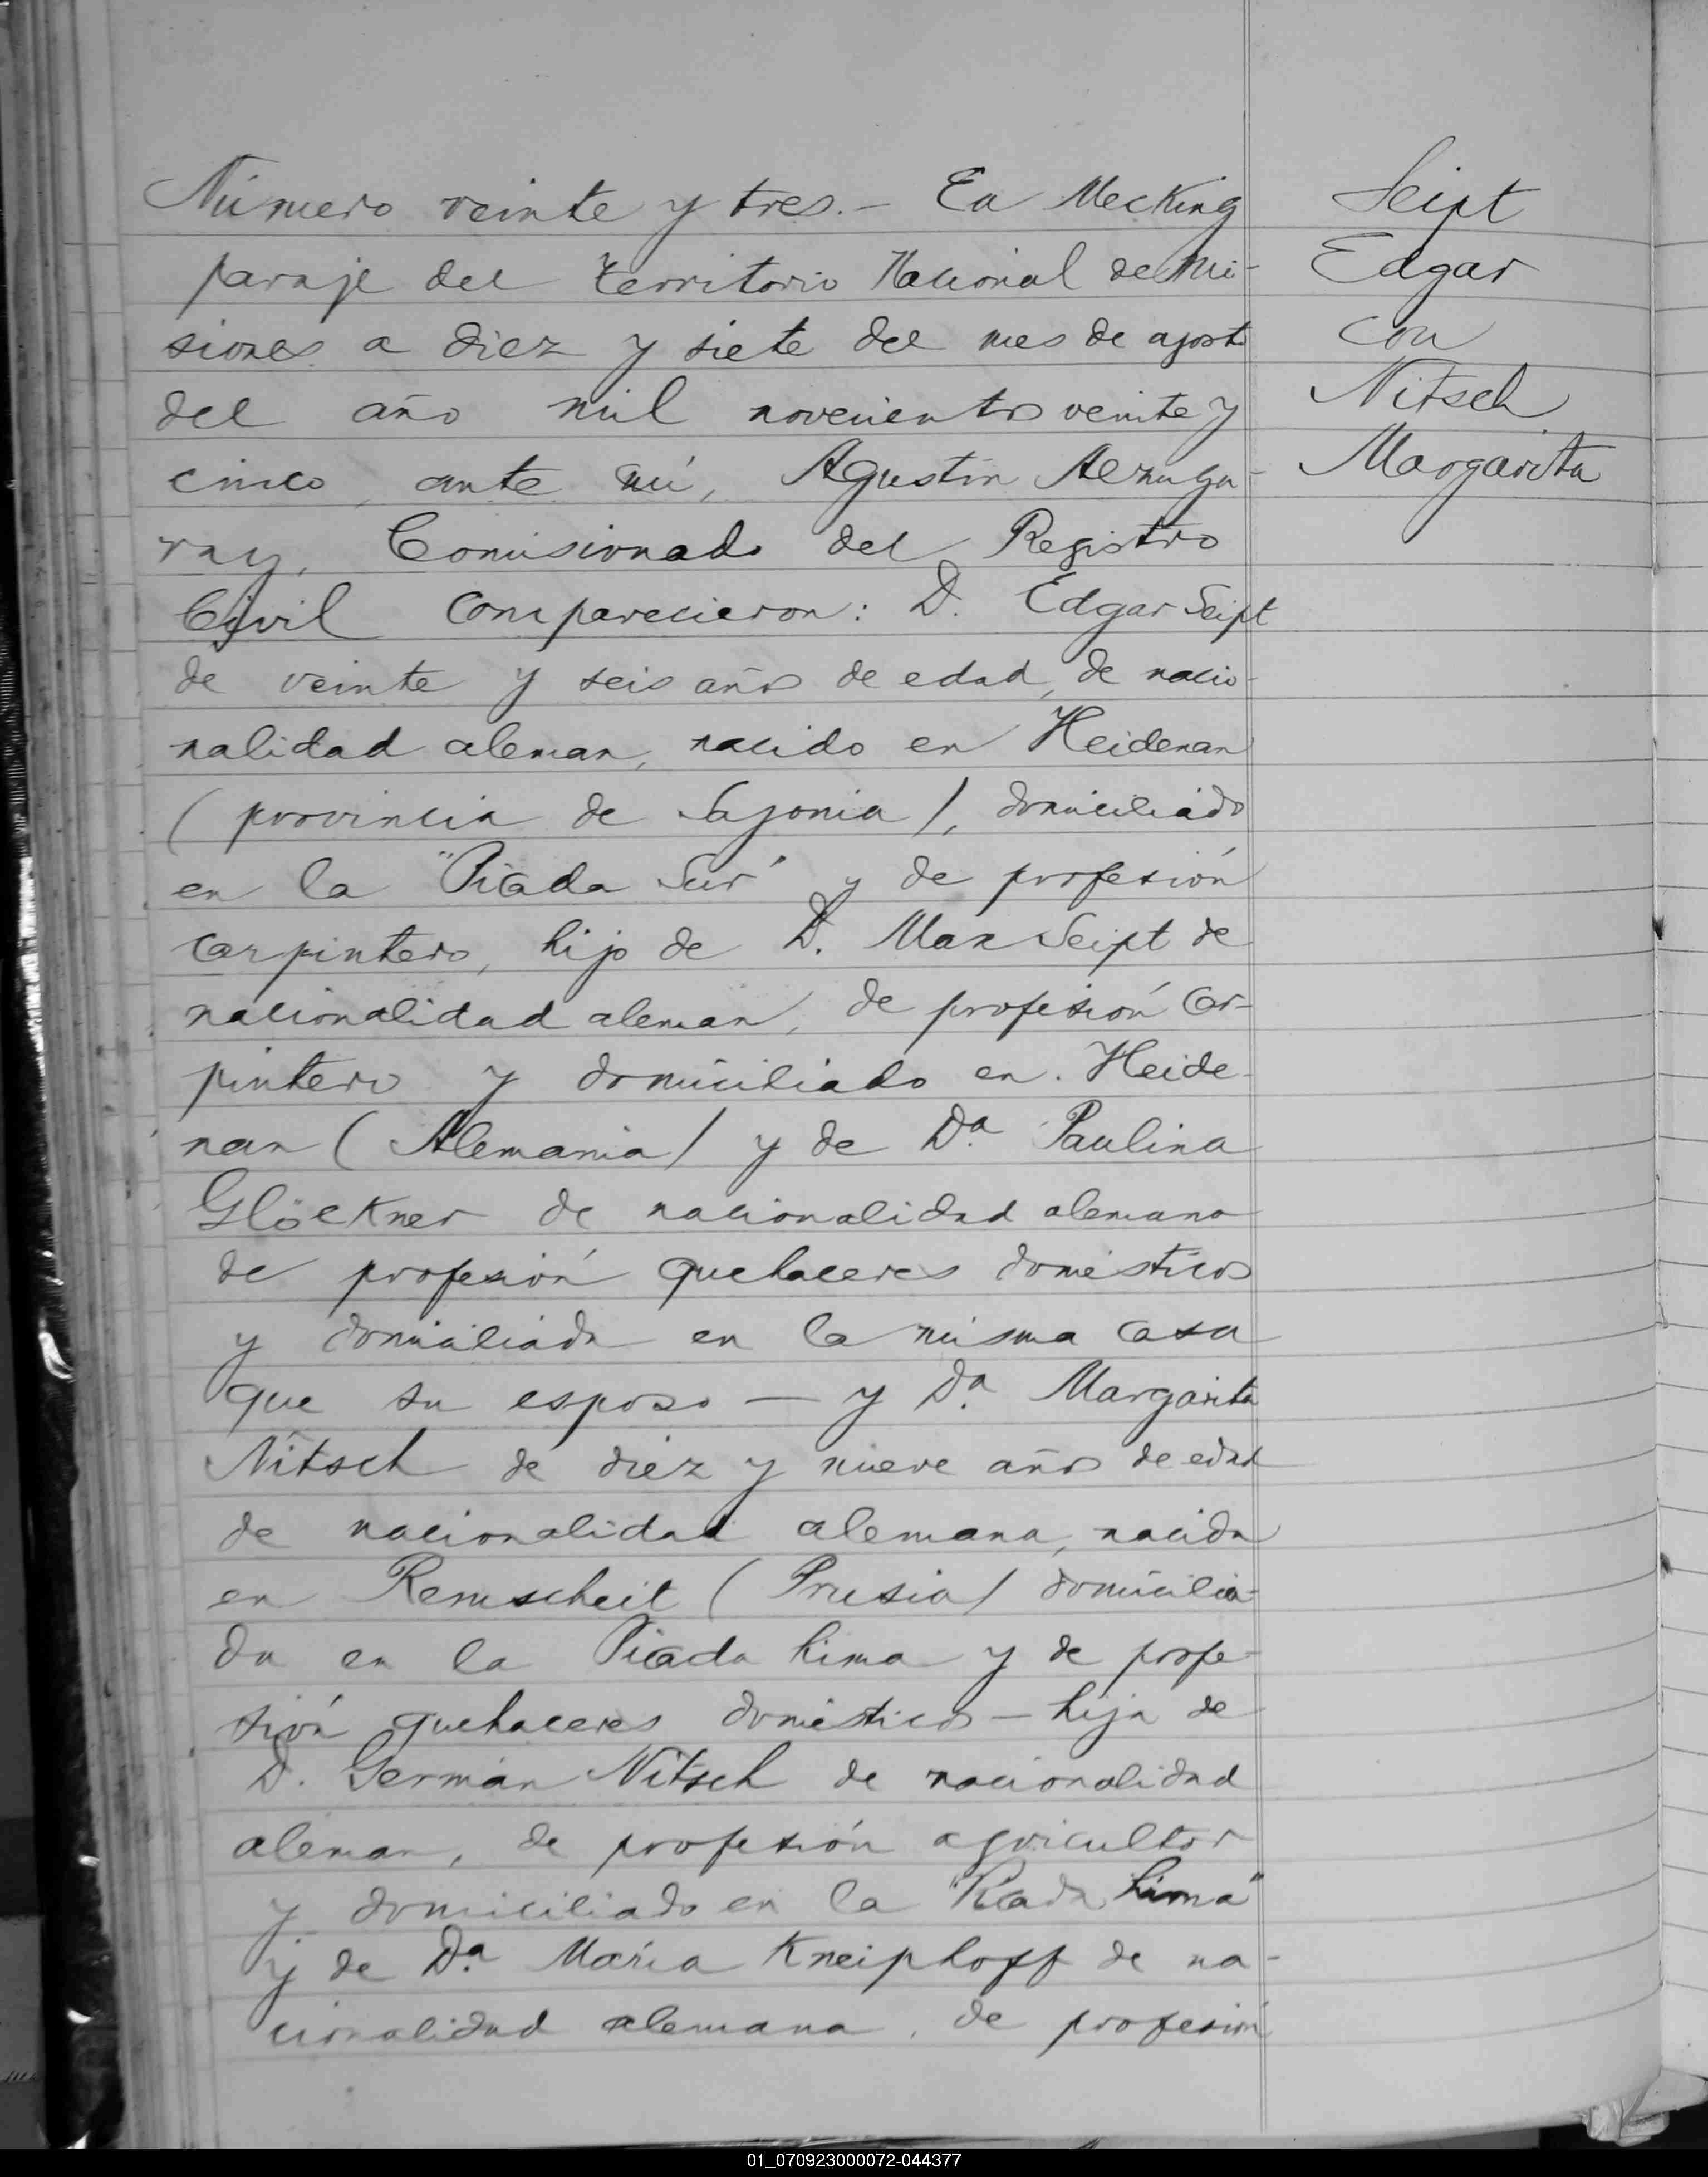 Número veinte y tres.- En Mecking
paraje del Territorio Nacional de Mi-
siones a diez y siete del mes de agosto
del año mil novecientos veinte y
cinco, ante mí, Agustín
ray, Comisionado del Registro
Civil comparecieron: D. Edgar Seipt
de veinte y seis años de edad, de nacio-
nalidad aleman, nacido en Heidenan
(provincia de Sajonia), domiciliado
en la "Picada Sur" y de profesión
carpintero, hijo de D. Max Seipt de
nacionalidad aleman, de profesión car-
pintero y domiciliado en Heide-
nan (Alemania) y de Da. Paulina
Glöckner de nacionalidad alemana
de profesión quehaceres domésticos
y domiciliada en la misma casa
que su esposo — y Da. Margarita
Nitsch de diez y nueve años de edad
de nacionalidad alemana, nacida
en Remscheit (Prusia) domicilia-
da en la Picada Lima y de profe-
sión quehaceres domésticos — hija de
D. Germán Nitsch de nacionalidad
aleman, de profesión agricultor
y domiciliado en la "Picada Lima"
y de Da. María Kneiphoff de na-
cionalidad alemana, de profesión
Seipt
Edgar
con
Nitsch
Margarita
01_070923000072-044377